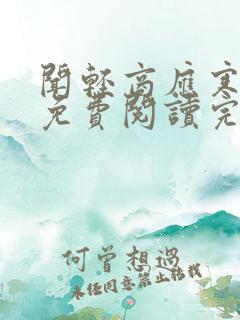 聞輕高應寒
免費閱讀完
何曾想過
未經同意禁止轉載